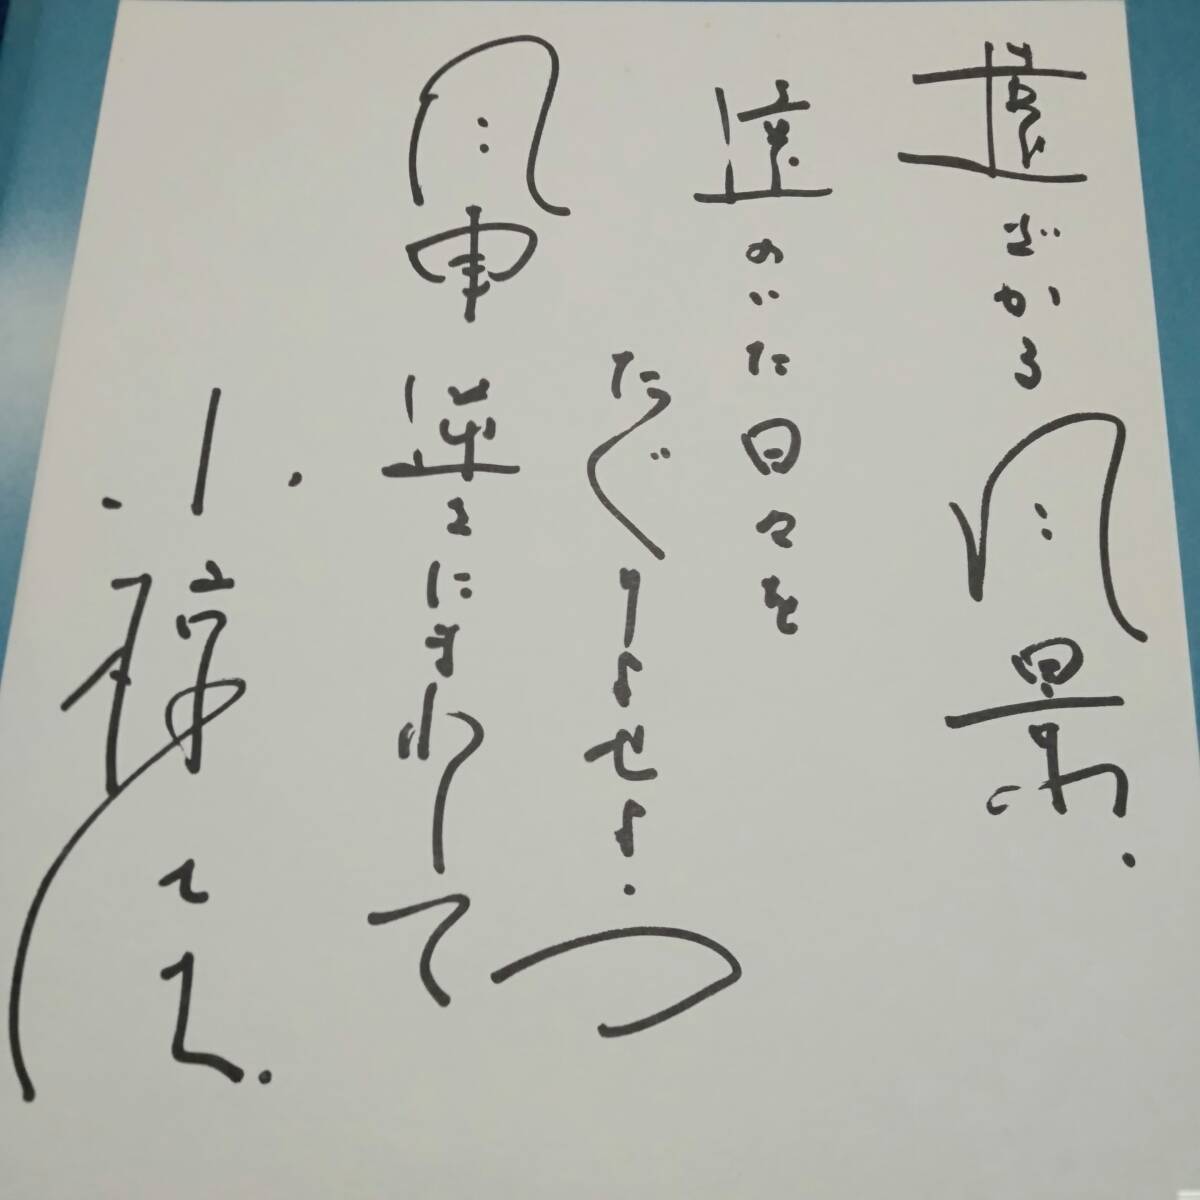 遠ざかる風景.
遠のいた日々を
たぐりよせよ.つ
風車逆さにまわして
小椋佳